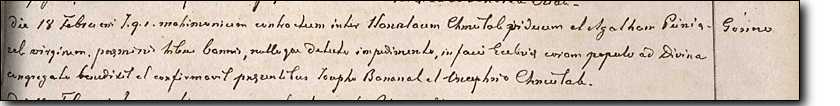 Die 18 Februarii I.q.s. matrimonium contractum inter Stanislaum Chmielak viduum et Agatham Punia- Gosino
cel virginem, praemissis tribus bannis, nulloque detecto impedimento, in facie Ecclesiae coram populo ad Divina
congregato benedixit et confirmavit praesentibus Josepho Bananal et Onuphrio Chmielak.